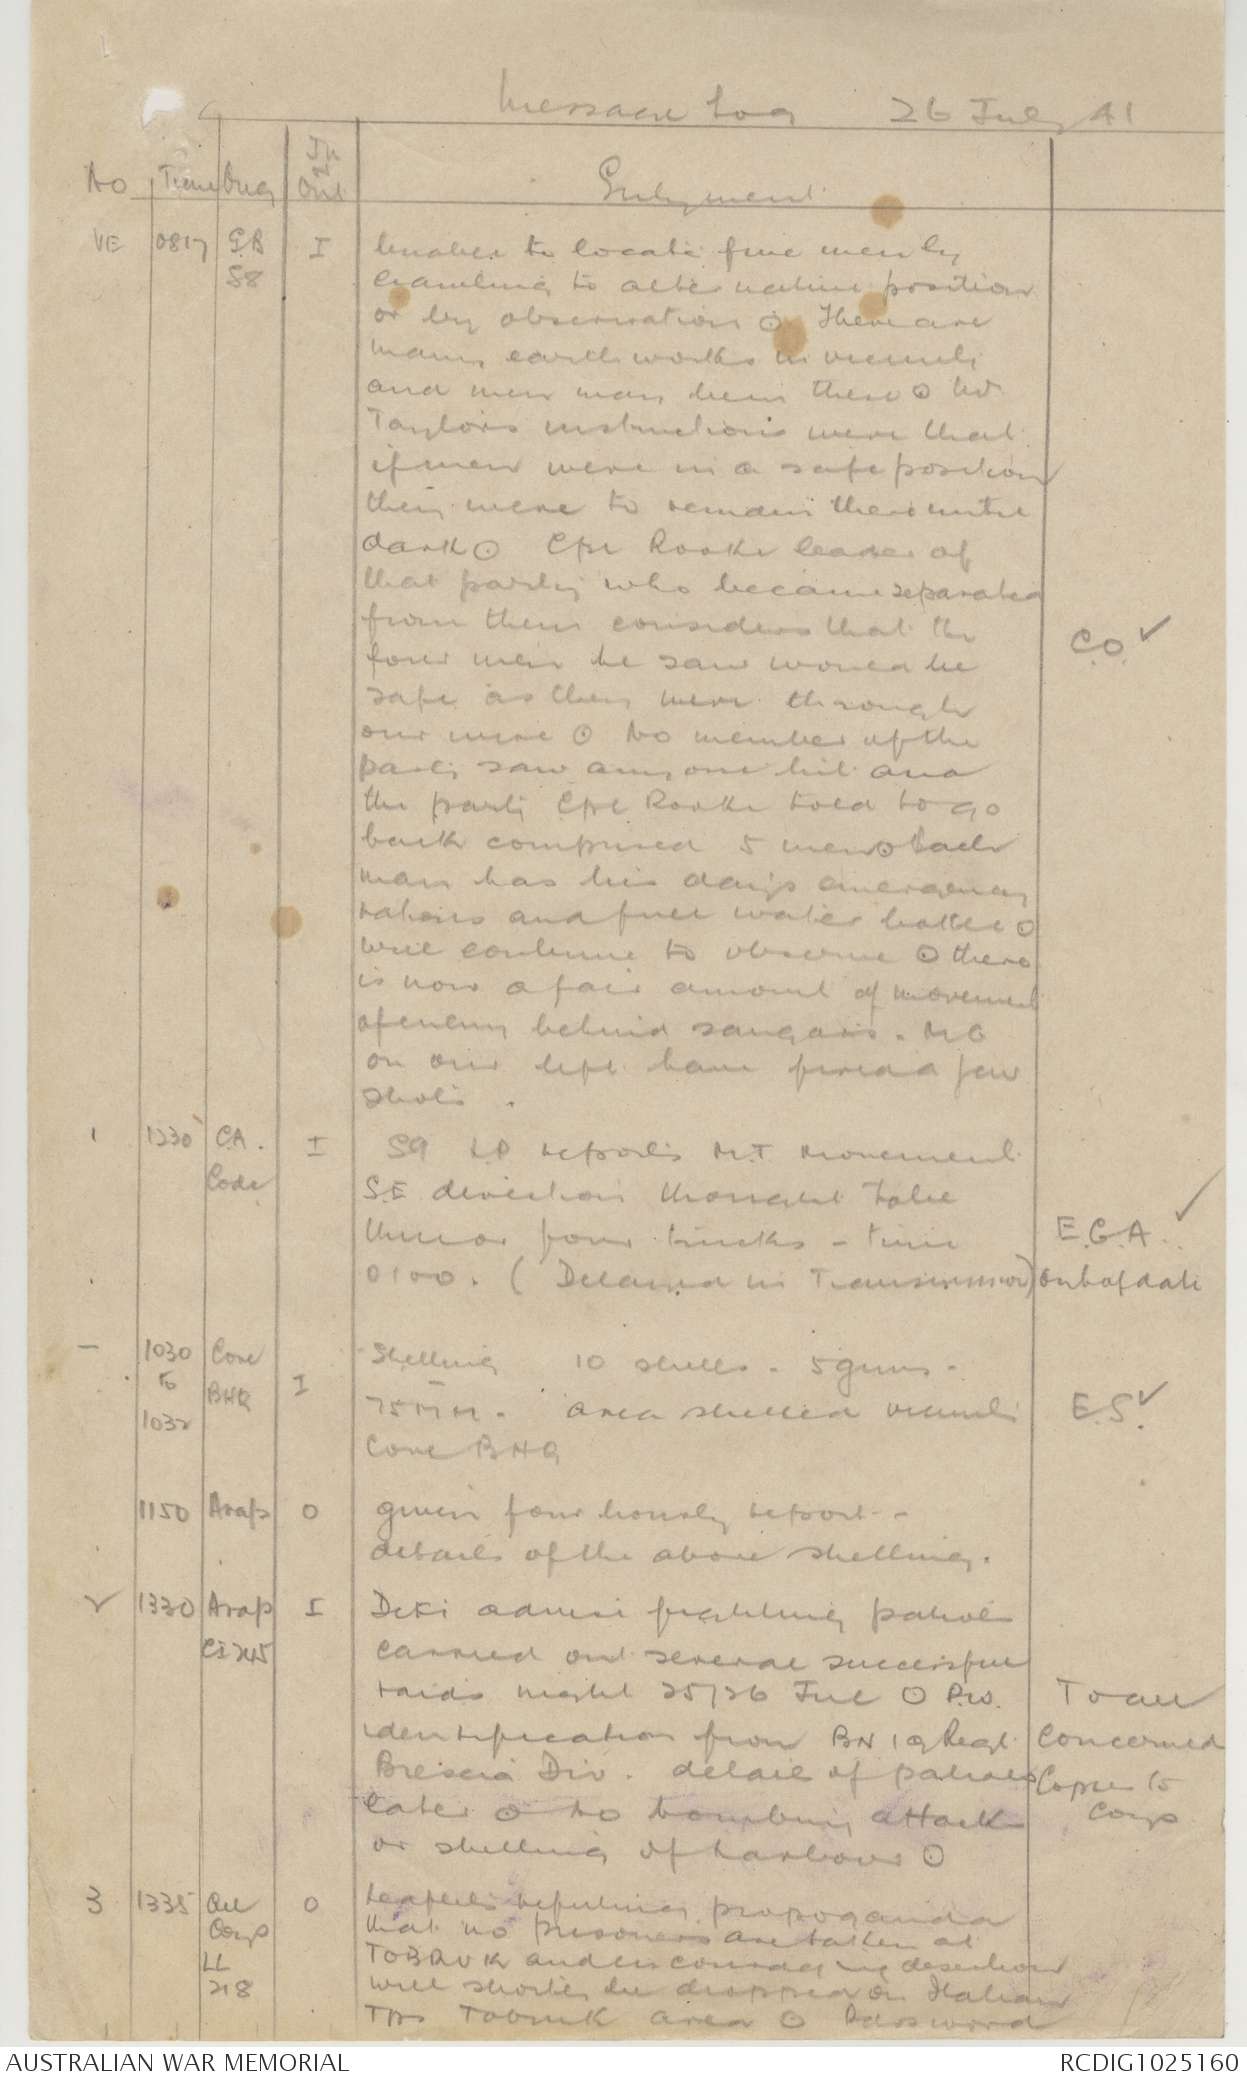 Message Log 26 July 41
No Time Orig In or Out
VE 0817 S8 I Unable to locate five men by
crawling to alternative position
or by observation ⊙ There are
many earth works in vicinity
and men may be in these ⊙
Taylors instructions were that
if men were in a safe position
they were to remain there until
dark ⊙ Cpl Rooke leader of
that party who became separated
from them considers that the
four men he saw would be
safe as they were through
our wire ⊙ No member of the
party saw anyone hit and
the party Cpl Rooke told to go
back comprised 5 men ⊙ Each
man has his days emergency
rations and full water bottle ⊙
will continue to observe ⊙ there
is now a fair amount of movement
of enemy behind sangars. MG
on our left have fired a few
shots.
C.O. ✓
1 1230 C.A. Code I S9 L.P reports M.T. movement
S.E direction thought to be
three or four trucks - time
0100. (Delayed in Transmission)
E.G.A. ✓
out of date
- 1030 to 1032 Coy BHQ I Shelling 10 shells - 5 guns -
75 MM. area shelled vicinity
BHQ
E.S. ✓
1150 Arap O given four hourly report -
details of the above shelling.
2 1330 Arap CI 245 I Deki advise fighting patrols
carried out several successful
raids night 25/26 Jul ⊙ P.W.
identification from BN 19 Regt
Brescia Div. detail of patrols
later ⊙ No bombing attack
or shelling of harbour ⊙
To all
concerned
Copies to
Coys
3 1335 All Coys LL 218 O Leaflets refuting propoganda
that no prisoners are taken at
TOBRUK and encouraging desertion
will shortly be dropped on Italian
Tps Tobruk area ⊙ Password
AUSTRALIAN WAR MEMORIAL
RCDIG1025160